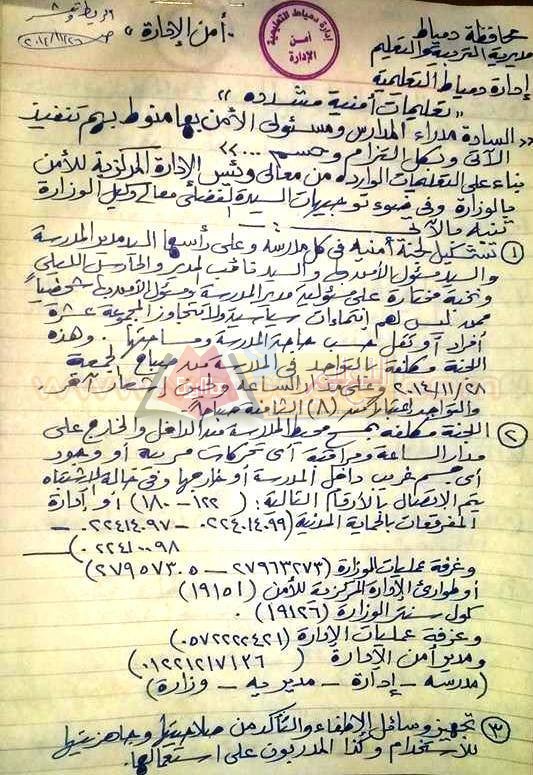 محافظة دمياط
مديرية التربية والتعليم
إدارة دمياط التعليمية
إدارة دمياط التعليمية
أمن
الإدارة
أمن الإدارة
« تعليمات أمنية مشددة »
السادة مدراء المدارس ومسئولى الأمن بها منوط بهم تنفيذ
الآتى وبكل التزام وحسم ...
بناء على التعليمات الواردة من معالى رئيس الإدارة المركزية للأمن
بالوزارة وفى ضوء توجيهات السيدة الفضلى معالى وكيل الوزارة
ننبه بالآتى :
١ تشكيل لجنة أمنية فى كل مدرسة وعلى رأسها السيد مدير المدرسة
والسيد مسئول الأمن بها والسيد نائب المدير والحارس الليلى
ونخبة مختارة على مسئولية مدير المدرسة ومسئول الأمن بها شخصياً
ممن ليس لهم إنتماءات سياسية ولا تتجاوز المجموعة عشرة
أفراد أو تقل حسب حاجة المدرسة ومساحتها . وهذه
اللجنة مكلفة بالتواجد فى المدرسة منذ صباح الجمعة
٢٠١٤/١١/٢٨ وعلى مدار الساعة وحتى إشعار آخر
والتواجد إعتباراً من (٨) الثامنة صباحاً
٢ اللجنة مكلفة بمسح محيط المدرسة من الداخل والخارج على
مدار الساعة ومراقبة أى تحركات مريبة أو وجود
أى جسم غريب داخل المدرسة أو خارجها وفى حالة الاشتباه
يتم الاتصال بالأرقام التالية : (١٢٢ - ١٨٠) أو إدارة
المفرقعات بالحماية المدنية (٠٢٢٤٠١٤٠٩٩ - ٠٢٢٤١٤٠٩٧ -
٠٢٢٤١٠٠٩٨)
وغرفة عمليات الوزارة (٢٧٩٦٣٢٧٣ - ٢٧٩٥٧٣٠٥)
أو طوارئ الإدارة المركزية للأمن (١٩١٥١)
كول سنتر الوزارة (١٩١٢٦) .
وغرفة عمليات الإدارة (٠٥٧٢٢٢٢٤٢١)
ومدير أمن الإدارة (٠١٢٢١٢١٧١٣٦)
(مدرسة - إدارة - مديرية - وزارة)
٣ تجهيز وسائل الإطفاء والتأكد من صلاحيتها وجاهزيتها
للاستخدام وكذا المدربون على استعمالها.